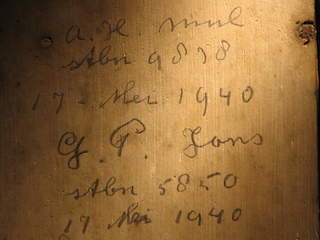 A. H. Mul
stbn 9878
17 - Mei 1940
G. P. Jons
stbn 5850
17 Mei 1940